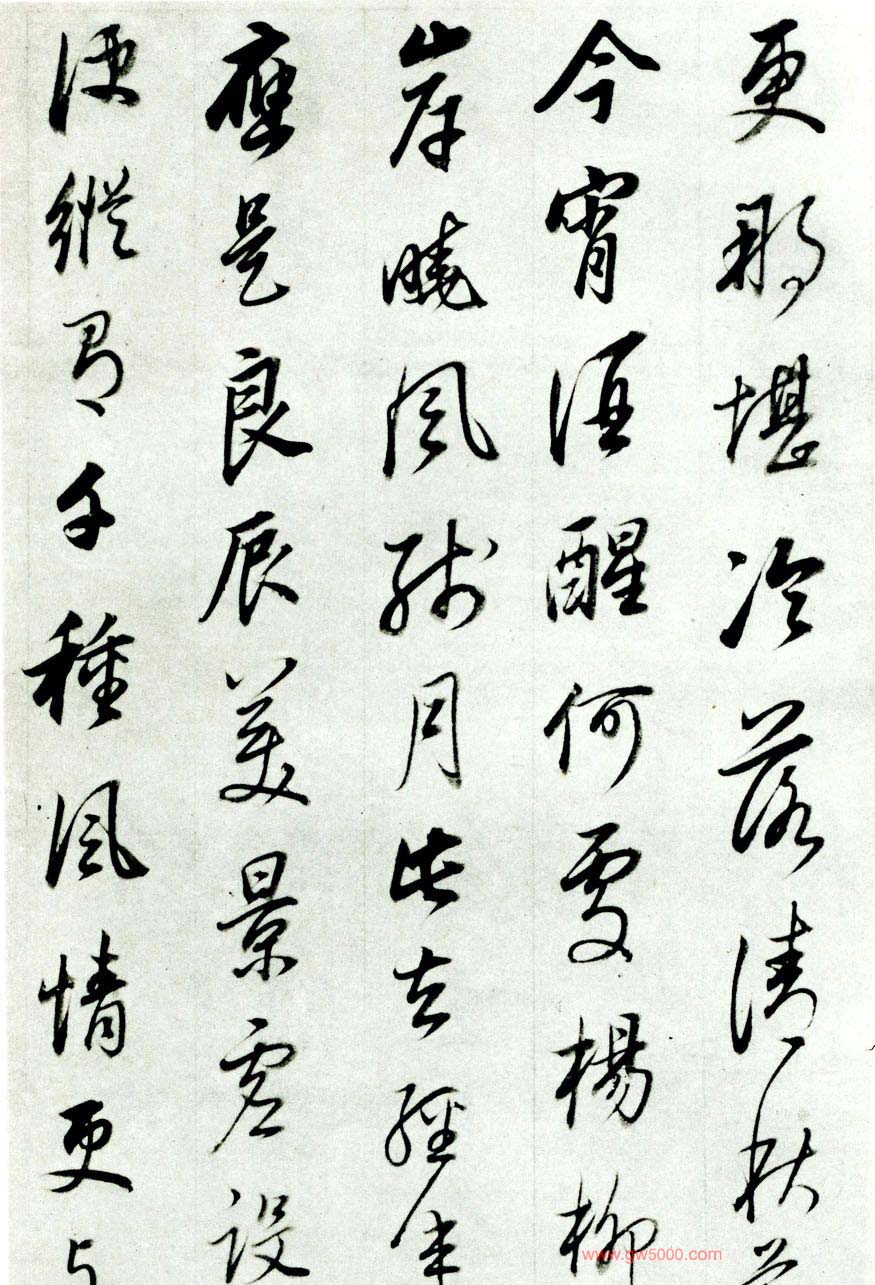 更那堪冷落清秋
今宵酒醒何處楊柳
岸曉風殘月此去經年
應是良辰美景虛設
便縱有千種風情更与
www.gw5000.com